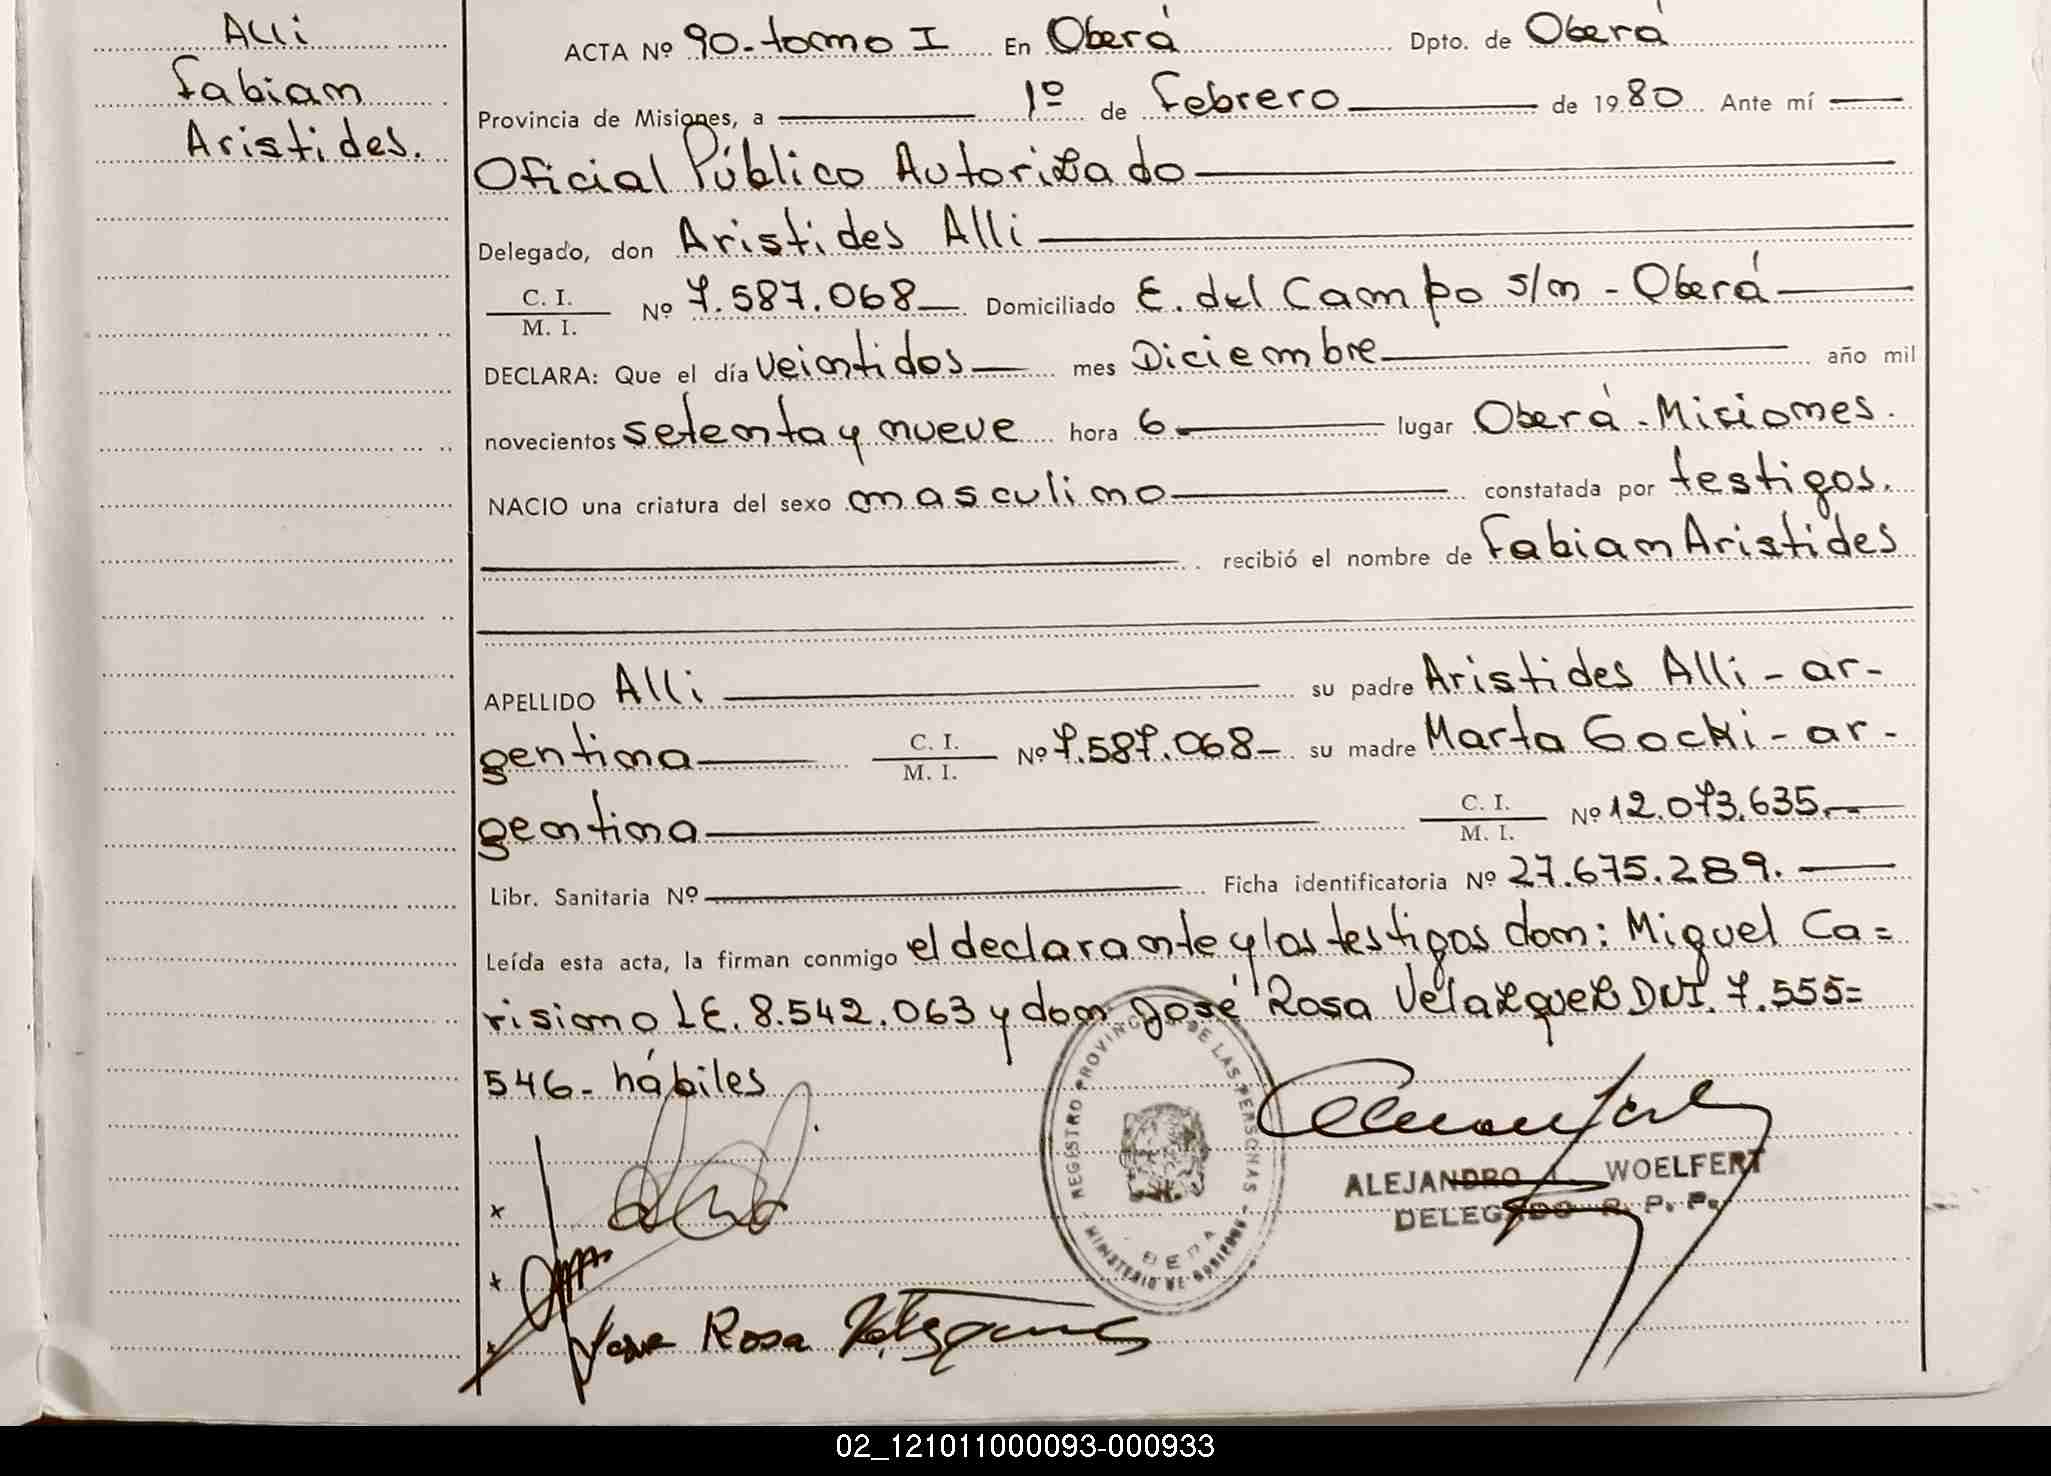 Alli
Fabian
Aristides.
ACTA Nº 90-tomo I En Oberá Dpto. de Oberá
Provincia de Misiones, a 1º de Febrero de 1980 Ante mí
Oficial Público Autorizado
Delegado, don Aristides Alli
C. I.
M. I. Nº 7.587.068 Domiciliado E. del Campo s/n - Oberá
DECLARA: Que el día veintidos mes Diciembre año mil
novecientos setenta y nueve hora 6 lugar Oberá-Misiones.
NACIO una criatura del sexo masculino constatada por testigos.
recibió el nombre de Fabian Aristides
APELLIDO Alli su padre Aristides Alli - ar-
gentina C. I.
M. I. Nº 7.587.068- su madre Marta Gocki - ar-
gentina C. I.
M. I. Nº 12.073.635.-
Libr. Sanitaria Nº Ficha identificatoria Nº 27.675.289.
Leída esta acta, la firman conmigo el declarante y los testigos don: Miguel Ca=
risimo LE. 8.542.063 y don José Rosa Velazquez DNI. 7.555=
546- hábiles
REGISTRO PROVINCIAL DE LAS PERSONAS
MINISTERIO DE GOBIERNO
OBERA
ALEJANDRO WOELFERT
DELEGADO R. P. P.
Jose Rosa Velazquez
02_121011000093-000933